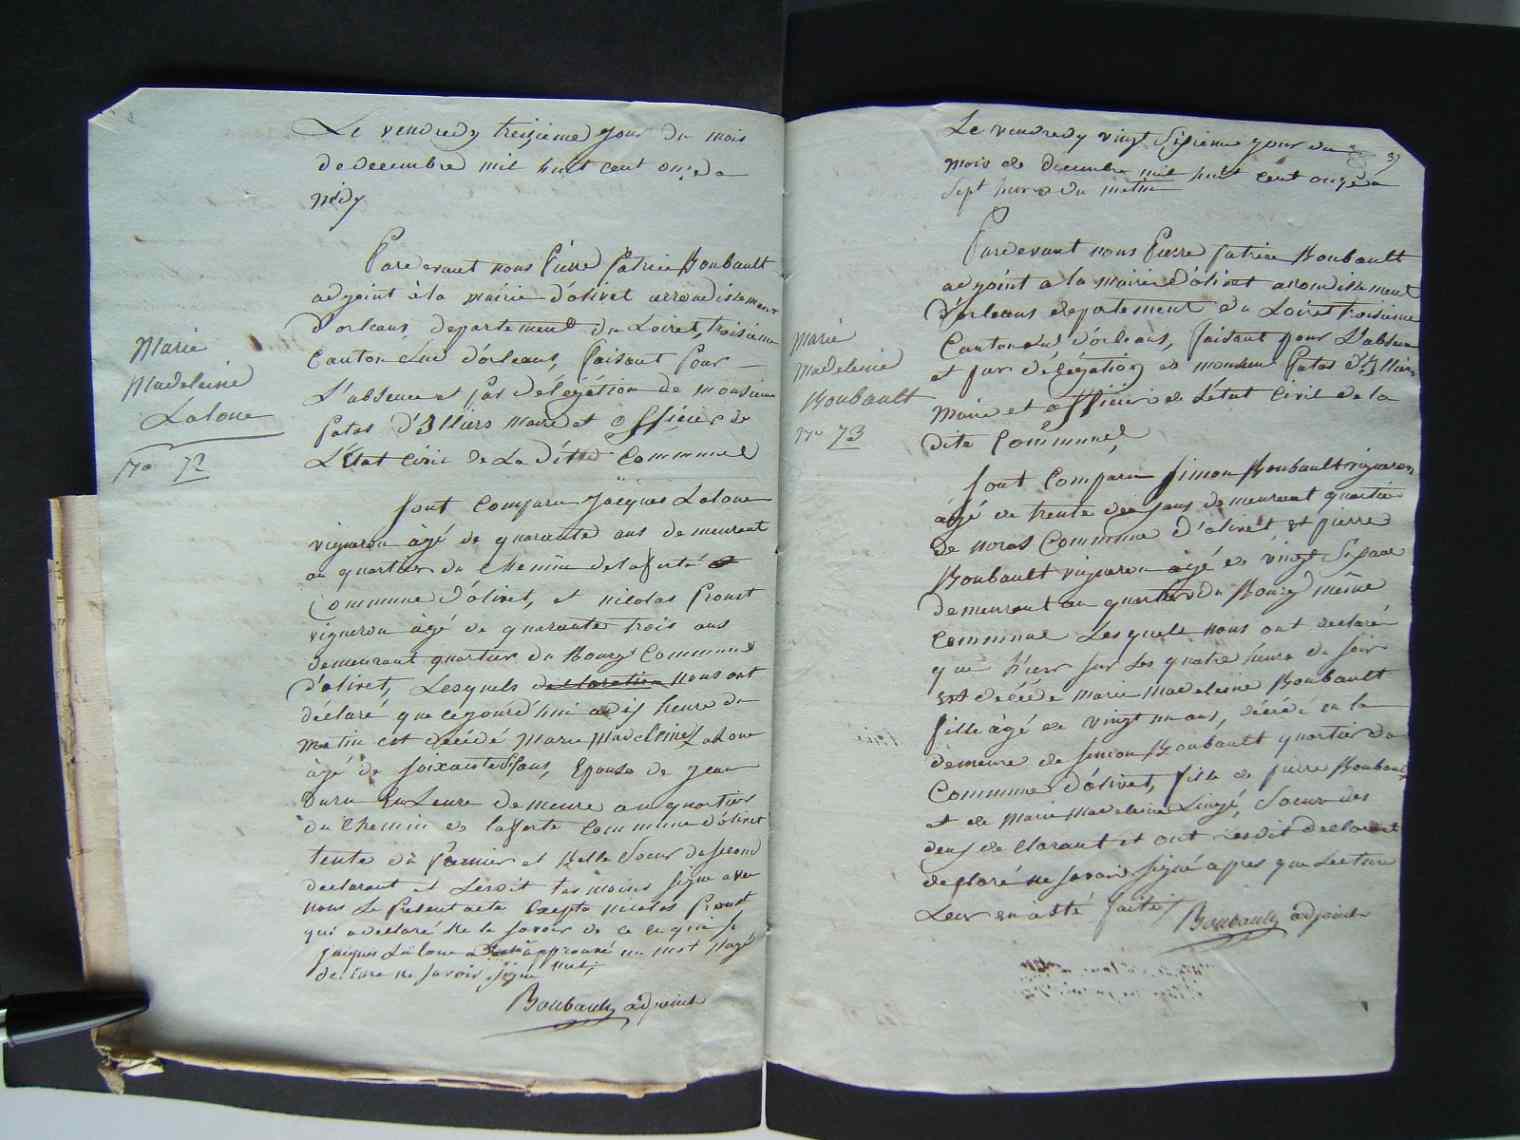 Le vendredy treizieme jour du mois
de decembre mil huit cent onze a
midy
Pardevant nous Pierre Patrice Boubault
adjoint à la mairie d'olivet arrondissement
d'orleans departement du Loiret, troisieme
Canton sud d'orleans, faisant pour
L'absence et par délégation de monsieur
Patas d'Illiers maire et officier de
L'état civil de La dite Commune
Marie
Madeleine
Laloue
No 72
sont Comparu Jacques Laloue
vigneron âgé de quarante ans demeurant
au quartier du chemin de la ferté
Commune d'olivet, et nicolas Proust
vigneron âgé de quarante trois ans
demeurant quartier du Bourg Commune
d'olivet, Lesquels declaration nous ont
déclaré que cejourd'hui à dix heure du
matin est décédé Marie Madeleine Laloue
âgé de soixante ans, Epouse de jean
en Leure demeure au quartier
du chemin de laferte Commune d'olivet
tente du Premier et Belle soeur du second
declarant et Lesdit temoins signé avec
nous Le Present acte Excepté nicolas Proust
qui a declaré ne le savoir de ce enquis
jacques Laloue approuvé un mot rayé
declare ne savoir signé nul,
Boubault adjoint
37
Le vendredy vingt sixieme jour du
mois de decembre mil huit cent onze à
sept heure du matin
Pardevant nous Pierre Patrice Boubault
adjoint a la mairie d'olivet arondissement
d'orleans departement du Loiret troisieme
Canton sud d'orleans, faisant pour L'absence
et par délégation de monsieur Patas d'Illiers
Maire et officier de L'état Civil de la
dite Commune,
Marie
Madeleine
Boubault
No 73
sont Comparu Simon Boubault vigneron
âgé de trente deux ans demeurant quartier
de noras Commune d'olivet et pierre
Boubault vigneron agé de vingt
demeurant au quartier du Bourg même
Commune Lesquels nous ont declaré
que hier sur les quatre heure du soir
est decédé marie madeleine Boubault
fille âgé de vingt un ans, décédé en la
demeure de simon Boubault quartier du
Commune d'olivet, fille de pierre Boubault
et de Marie Madeleine Lingé, soeur des
deux declarant et ont Lesdit declarant
declaré ne savoir signé apres que Lecture
Leur en a été faite
Boubault adjoint